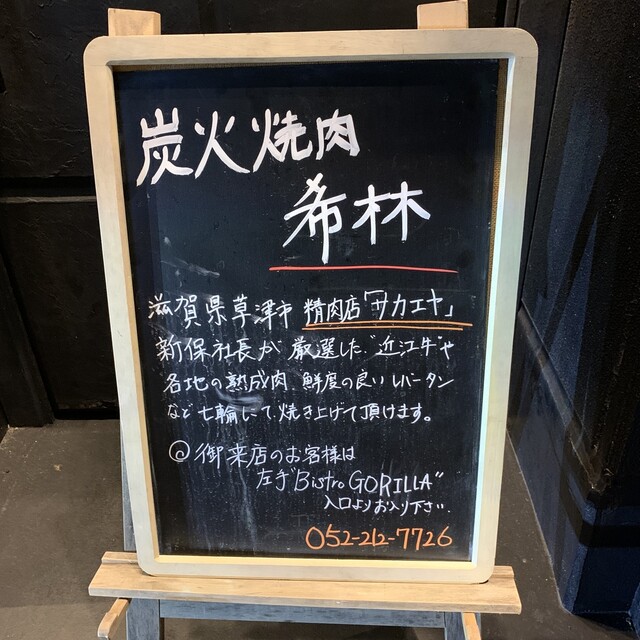 炭火焼肉
希林
滋賀県草津市 精肉店「サカエヤ」
新保社長が厳選した"近江牛"や
各地の熟成肉、鮮度の良いレバータン
など七輪にて焼き上げて頂けます。
◎御来店のお客様は
左手"Bistro GORILLA"
入口よりお入り下さい.
052-212-7726